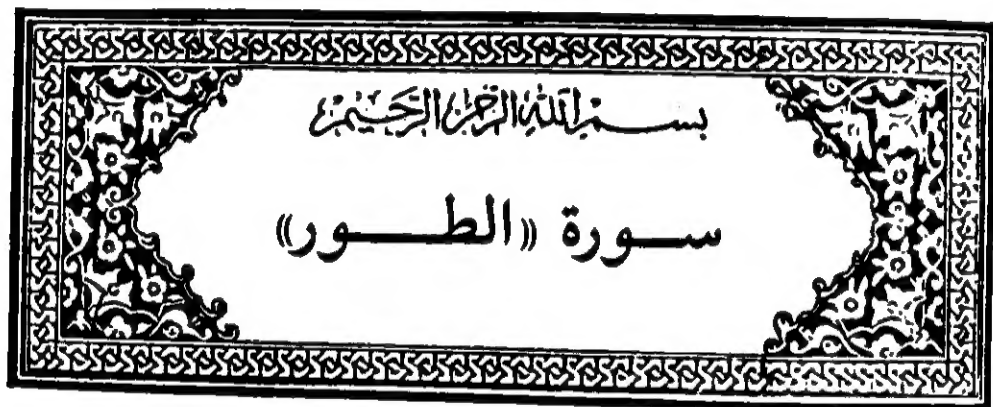 بسم الله الرحمن الرحيم
سورة «الطور»